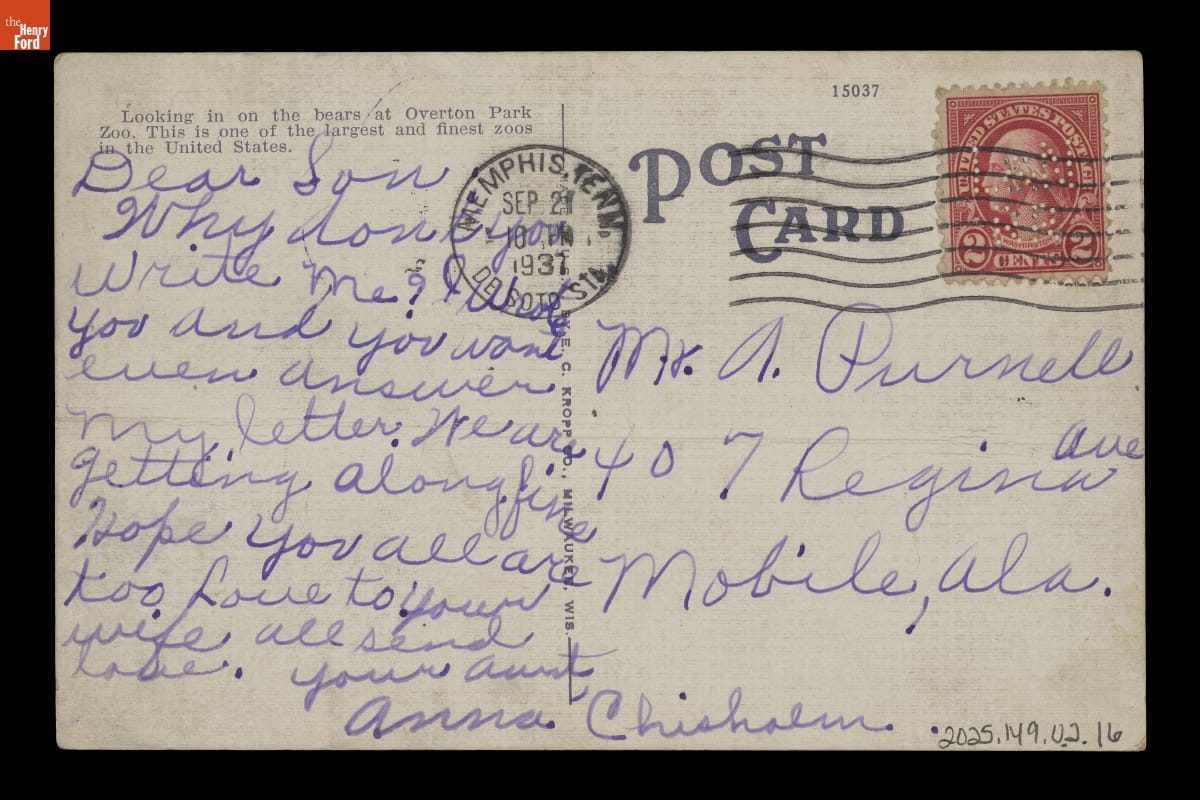 the
Henry
Ford
Looking in on the bears at Overton Park
Zoo. This is one of the largest and finest zoos
in the United States.
15037
POST
CARD
MEMPHIS, TENN.
SEP 29
10
1937
DE SOTO STA.
UNITED STATES POSTAGE
WASHINGTON
2 CENTS 2
Dear Son
Why dont you
write me? I
you and you wont
even answer
my letter. We are
getting along fine
Hope you all are
too Love to your
wife all send
love. your aunt
Anna Chisholm.
E. C. KROPP CO., MILWAUKEE, WIS.
Mr. A. Purnell
407 Regina Ave
Mobile, Ala.
2025.149.0.2.16